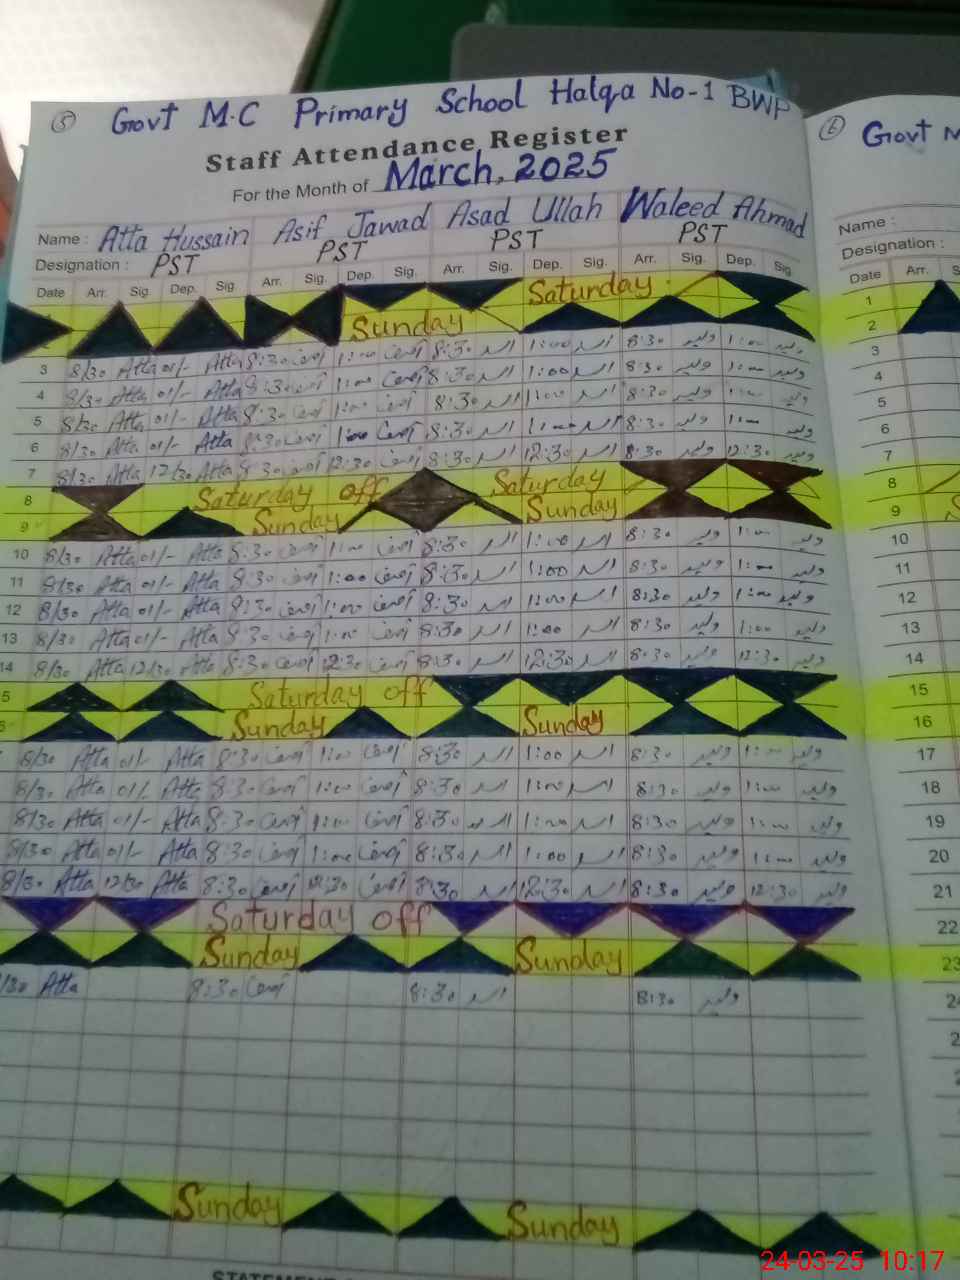 5 Govt M.C Primary School Halqa No-1 BWP
6 Govt M
Staff Attendance Register
For the Month of March, 2025
Name : Atta Hussain Asif Jawad Asad Ullah Waleed Ahmad
Designation : PST PST PST PST
Date Arr. Sig. Dep. Sig. Arr. Sig. Dep. Sig. Arr. Sig. Dep. Sig. Arr. Sig. Dep. Sig.
Name :
Designation :
Date Arr. S
Saturday 1
Sunday 2
3 8/30 Atta 01/- Atta 8:30 آصف 1:00 آصف 8:30 اسد 1:00 اسد 8:30 ولید 1:00 ولید 3
4 8/30 Atta 01/- Atta 8:30 آصف 1:00 آصف 8:30 اسد 1:00 اسد 8:30 ولید 1:00 ولید 4
5 8/30 Atta 01/- Atta 8:30 آصف 1:00 آصف 8:30 اسد 1:00 اسد 8:30 ولید 1:00 ولید 5
6 8/30 Atta 01/- Atta 8:30 آصف 1:00 آصف 8:30 اسد 1:00 اسد 8:30 ولید 1:00 ولید 6
7 8/30 Atta 12/30 Atta 8:30 آصف 12:30 آصف 8:30 اسد 12:30 اسد 8:30 ولید 12:30 ولید 7
8 Saturday off Saturday 8
9 Sunday Sunday 9
10 8/30 Atta 01/- Atta 8:30 آصف 1:00 آصف 8:30 اسد 1:00 اسد 8:30 ولید 1:00 ولید 10
11 8/30 Atta 01/- Atta 8:30 آصف 1:00 آصف 8:30 اسد 1:00 اسد 8:30 ولید 1:00 ولید 11
12 8/30 Atta 01/- Atta 8:30 آصف 1:00 آصف 8:30 اسد 1:00 اسد 8:30 ولید 1:00 ولید 12
13 8/30 Atta 01/- Atta 8:30 آصف 1:00 آصف 8:30 اسد 1:00 اسد 8:30 ولید 1:00 ولید 13
14 8/30 Atta 12/30 Atta 8:30 آصف 12:30 آصف 8:30 اسد 12:30 اسد 8:30 ولید 12:30 ولید 14
5 Saturday off 15
Sunday Sunday 16
8/30 Atta 01/- Atta 8:30 آصف 1:00 آصف 8:30 اسد 1:00 اسد 8:30 ولید 1:00 ولید 17
8/30 Atta 01/- Atta 8:30 آصف 1:00 آصف 8:30 اسد 1:00 اسد 8:30 ولید 1:00 ولید 18
8/30 Atta 01/- Atta 8:30 آصف 1:00 آصف 8:30 اسد 1:00 اسد 8:30 ولید 1:00 ولید 19
8/30 Atta 01/- Atta 8:30 آصف 1:00 آصف 8:30 اسد 1:00 اسد 8:30 ولید 1:00 ولید 20
8/30 Atta 12/30 Atta 8:30 آصف 12:30 آصف 8:30 اسد 12:30 اسد 8:30 ولید 12:30 ولید 21
Saturday off 22
Sunday Sunday 23
/30 Atta 8:30 آصف 8:30 اسد 8:30 ولید 24
2
Sunday Sunday
STATEMEN
24-03-25 10:17